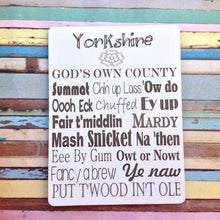 Yorkshire
GOD'S OWN COUNTY
Summat Chin up Loss 'Ow do
Oooh Eck Chuffed Ey up
Fair t'middlin MARDY
Mash Snicket Na 'then
Eee By Gum Owt or Nowt
Fancy a brew Ye naw
PUT T'WOOD IN T' OLE